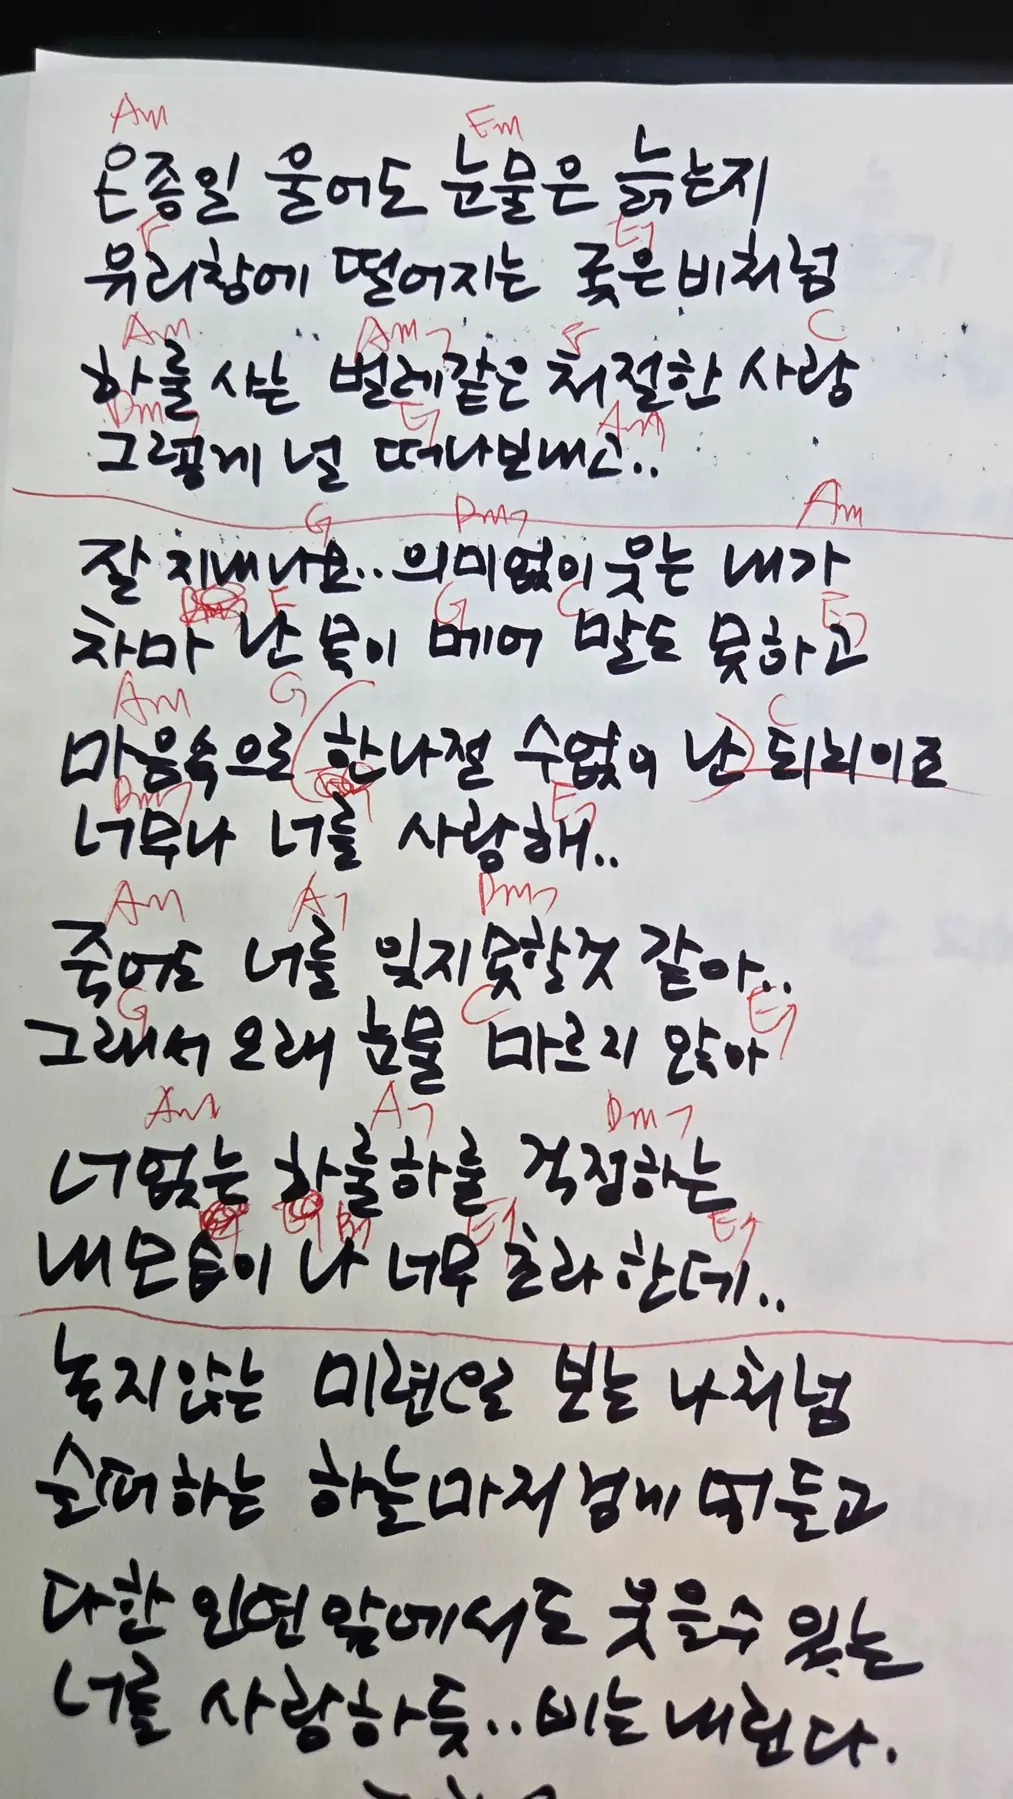 Am Em
온종일 울어도 눈물은 늙는지
F E7
유리창에 떨어지는 궂은비처럼
Am Am7 F C
하룰 사는 벌레같은 처절한 사랑
Dm7 E7 Am
그렇게 널 떠나보내고..
G Dm7 Am
잘 지내나요.. 의미없이 웃는 내가
F G C E7
차마 난 목이 메어 말도 못하고
Am G C
마음속으로 (한나절 수없이 난) 되뇌이죠
Dm7 E7
너무나 너를 사랑해..
Am A7 Dm7
죽어도 너를 잊지못할것 같아..
G C E7
그래서 오래 눈물 마르지 않아
Am A7 Dm7
너없는 하룰하룰 걱정하는
B7 E7 E7
내모습이 나 너무 초라한데..
놓지않는 미련으로 보는 나처럼
술퍼하는 하늘마저 검게 멍들고
다한 인연앞에서도 웃을수 있는
너를 사랑하듯.. 비는 내린다.